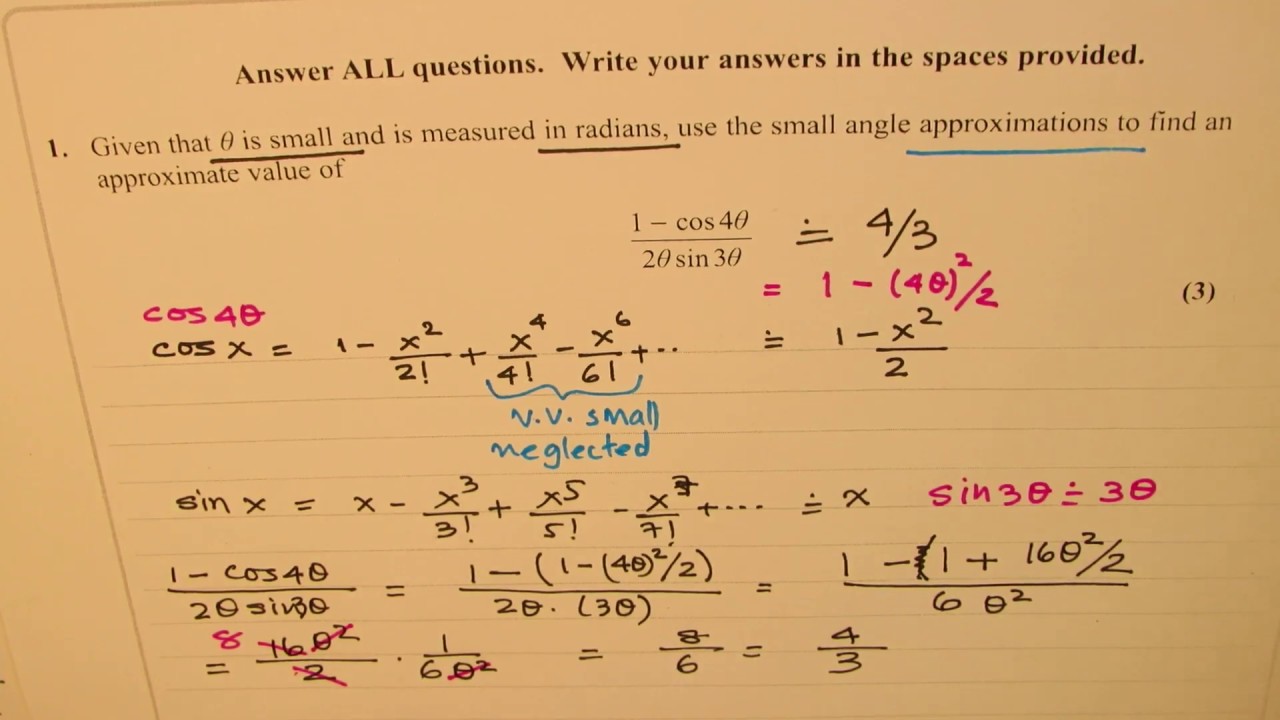 Answer ALL questions. Write your answers in the spaces provided.
1. Given that θ is small and is measured in radians, use the small angle approximations to find an
approximate value of
(1 − cos 4θ)/(2θ sin 3θ) ≐ 4/3
= 1 − (4θ)²/2
(3)
cos4θ
cos x = 1 − x²/2! + x⁴/4! − x⁶/6! + ·· ≐ (1 − x²)/2
v.v. small
neglected
sin x = x − x³/3! + x⁵/5! − x⁷/7! + ···· ≐ x sin3θ ≐ 3θ
(1 − cos4θ)/(2θ sin3θ) = (1 − (1 − (4θ)²/2))/(2θ · (3θ)) = (1 − 1 + 16θ²/2)/(6 θ²)
= 8 16θ²/2 · 1/(6θ²) = 8/6 = 4/3